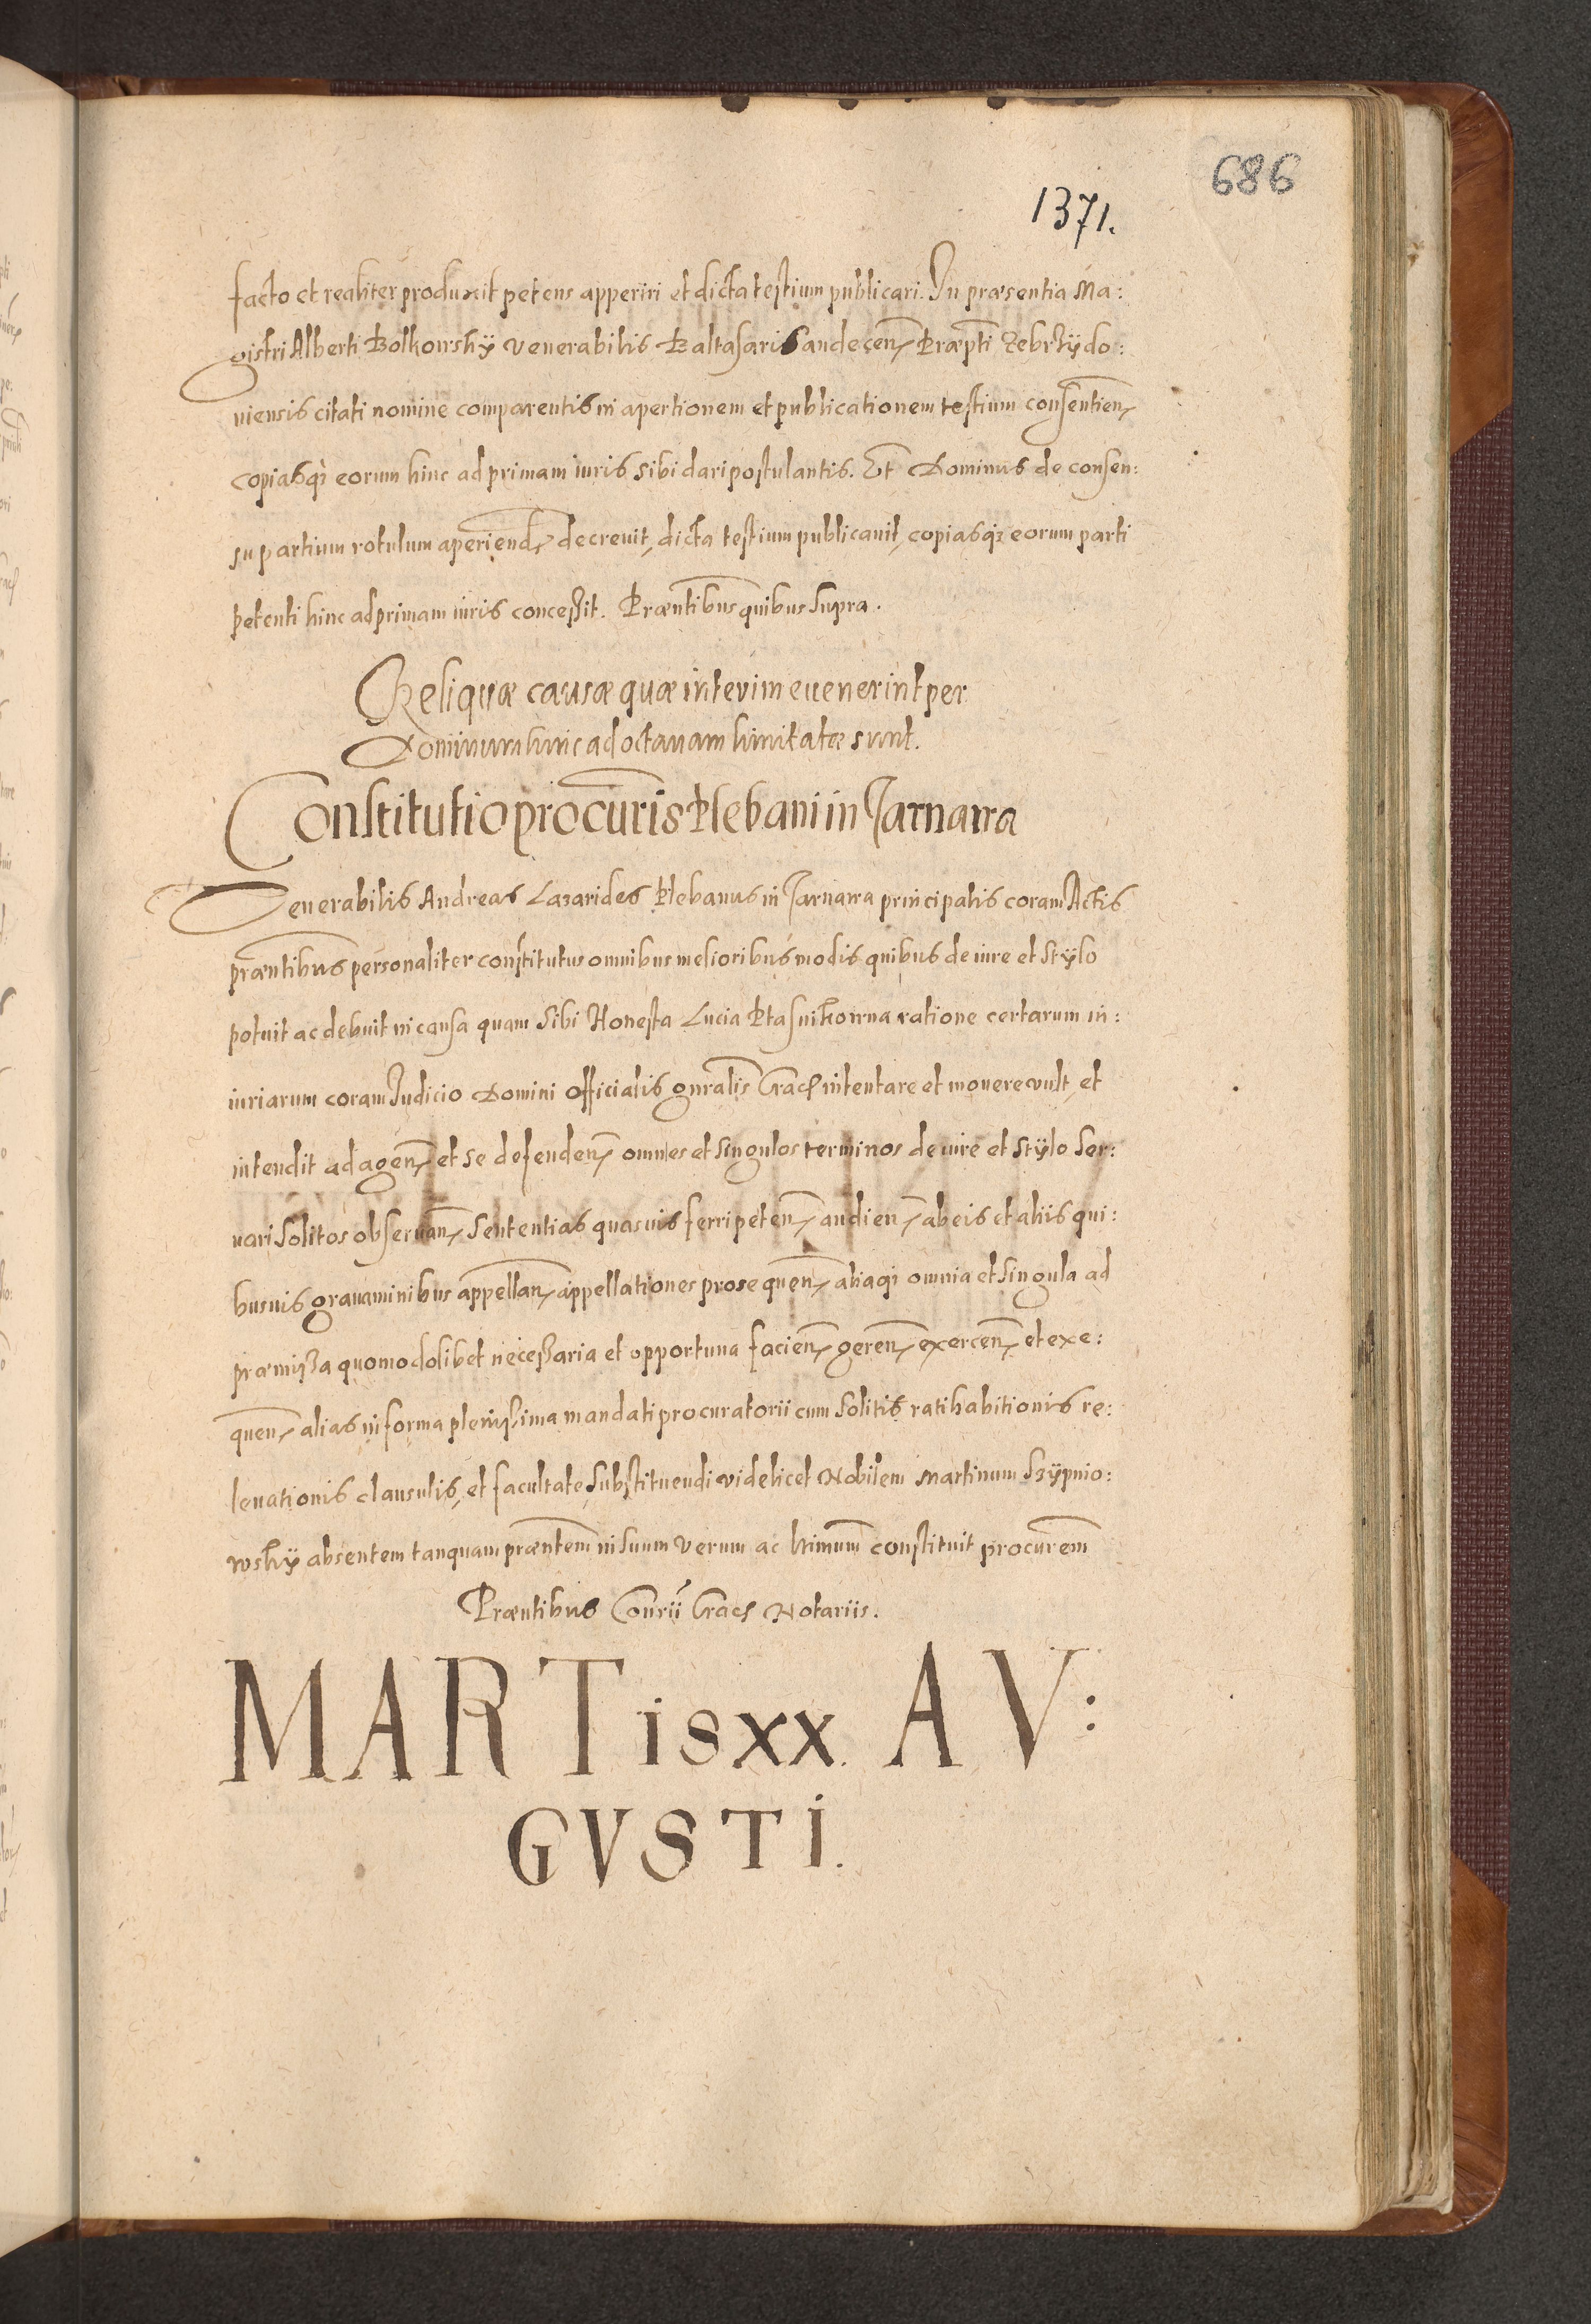 686
1371.
facto et realiter produxit petens apperiri et dicta testium publicari. In præsentia Ma:
gistri Alberti Bolkowsky venerabilis Baltasaris Sandecen͂ Præpti Zebrzÿdo:
niensis citati nomine comparentis in apertionem et publicationem testium consentien͂
copiasq́ eorum hinc ad primam iuris sibi dari postulantis. Et Dominus de consen:
su partium rotulum aperiend͂ decreuit, dicta testium publicauit, copiasq́ eorum parti
petenti hinc ad primam iuris conceßit. Præntibus quibus supra.
Reliquæ causæ quæ interim euenerint per
Dominum hinc ad octauam limitatæ sunt.
Constitutio procuris Plebani in Jarnawa
Venerabilis Andreas Lazarides Plebanus in Jarnawa principalis coram Actis
præntibus personaliter constitutus omnibus melioribus modis quibus de iure et stÿlo
potuit ac debuit in causa quam sibi Honesta Lucia Ptasnikowna ratione certarum in:
iuriarum coram Iudicio Domini Officialis gnralis Crac͂ intentare et mouere vult, et
intendit ad agen͂ et se defenden͂ omnes et singulos terminos de iure et stÿlo ser:
uari solitos obseruan͂ sententias quasuis ferri peten͂ audien͂ ab eis et aliis qui:
busuis grauaminibus appellan͂ appellationes prosequen͂ aliaq́ omnia et singula ad
præmißa quomodolibet neceßaria et opportuna facien͂ geren͂ exercen͂ et exe:
quen͂ alias in forma plenißima mandati procuratorii cum solitis ratihabitionis re:
leuationis clausulis, et facultate substituendi videlicet Nobilem Martinum Szÿpnio:
wskÿ absentem tanquam præntem in suum verum ac ltimum constituit procurem
Præntibus Conrii Crac͂ Notariis.
MARTis xx. AV:
GVSTi.